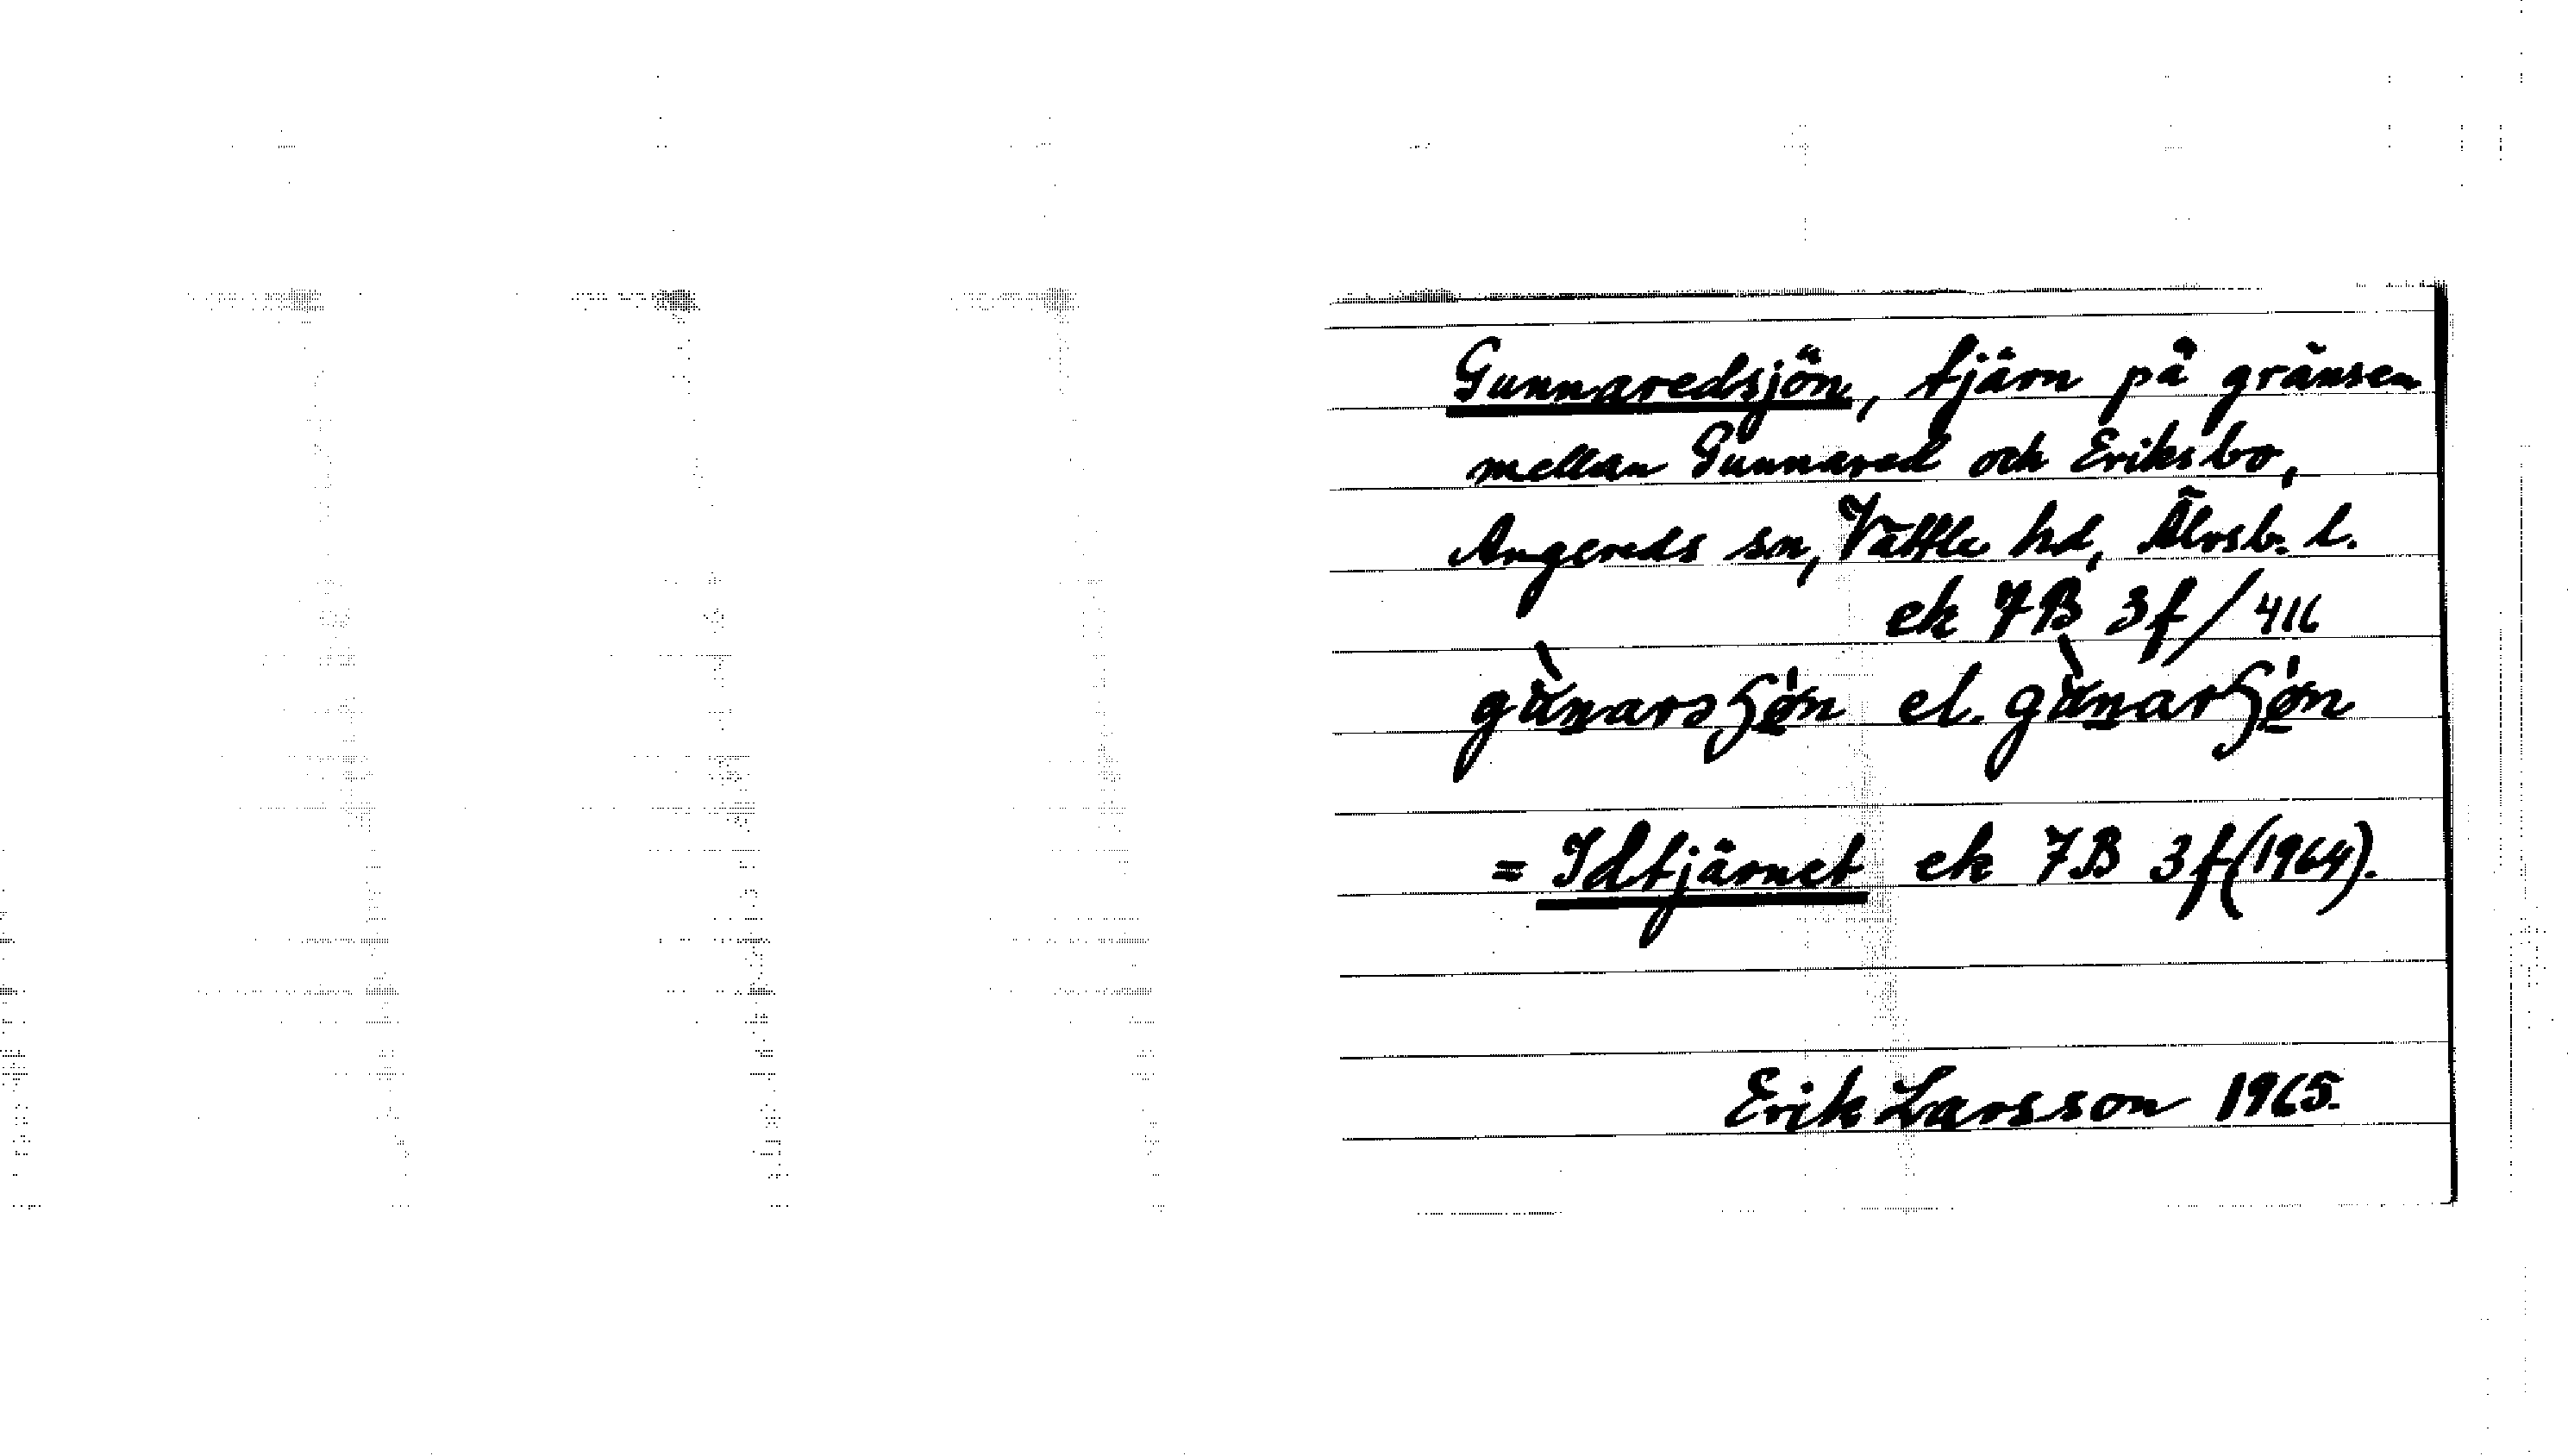 Gunnaredsjön, tjärn på gränsen
mellan Gunnared och Eriksbo,
Angereds sn, Vättle hd, Älvsb. l.
ek 7B 3f/416
el.
= Idtjärnet ek 7B 3f (1964).
Erik Larsson 1965.